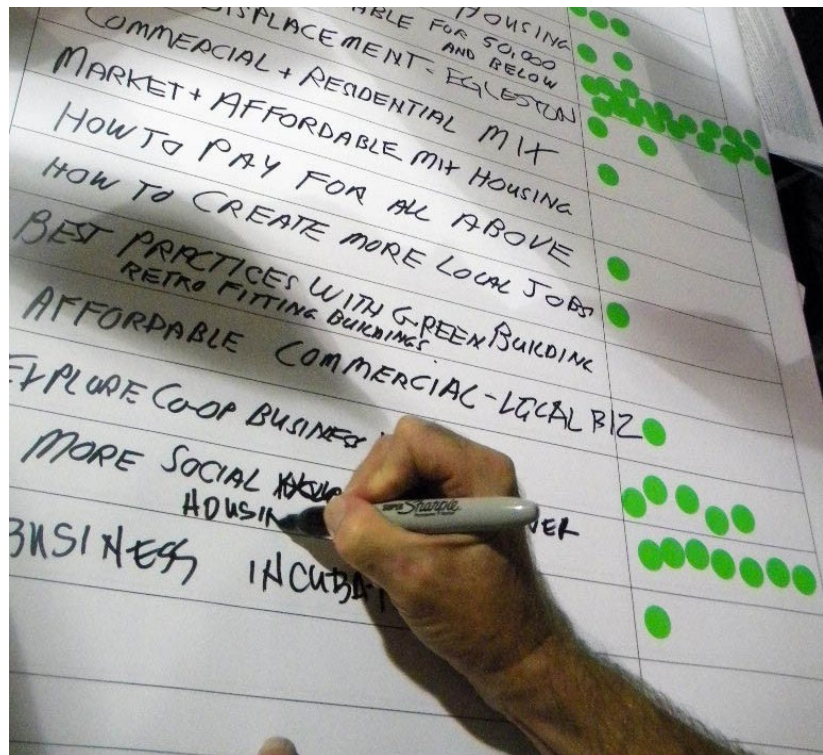 HOUSING
ABLE FOR 50,000
AND BELOW
DISPLACEMENT - EGLESTON
COMMERCIAL + RESIDENTIAL MIX
MARKET + AFFORDABLE MIX HOUSING
HOW TO PAY FOR ALL ABOVE
HOW TO CREATE MORE LOCAL JOBS
BEST PRACTICES WITH GREEN BUILDING
RETRO FITTING BUILDINGS
AFFORDABLE COMMERCIAL - LOCAL BIZ
EXPLORE CO-OP BUSINESS
MORE SOCIAL
HOUSIN
VER
BUSINESS INCUBAT
SUPER Sharpie